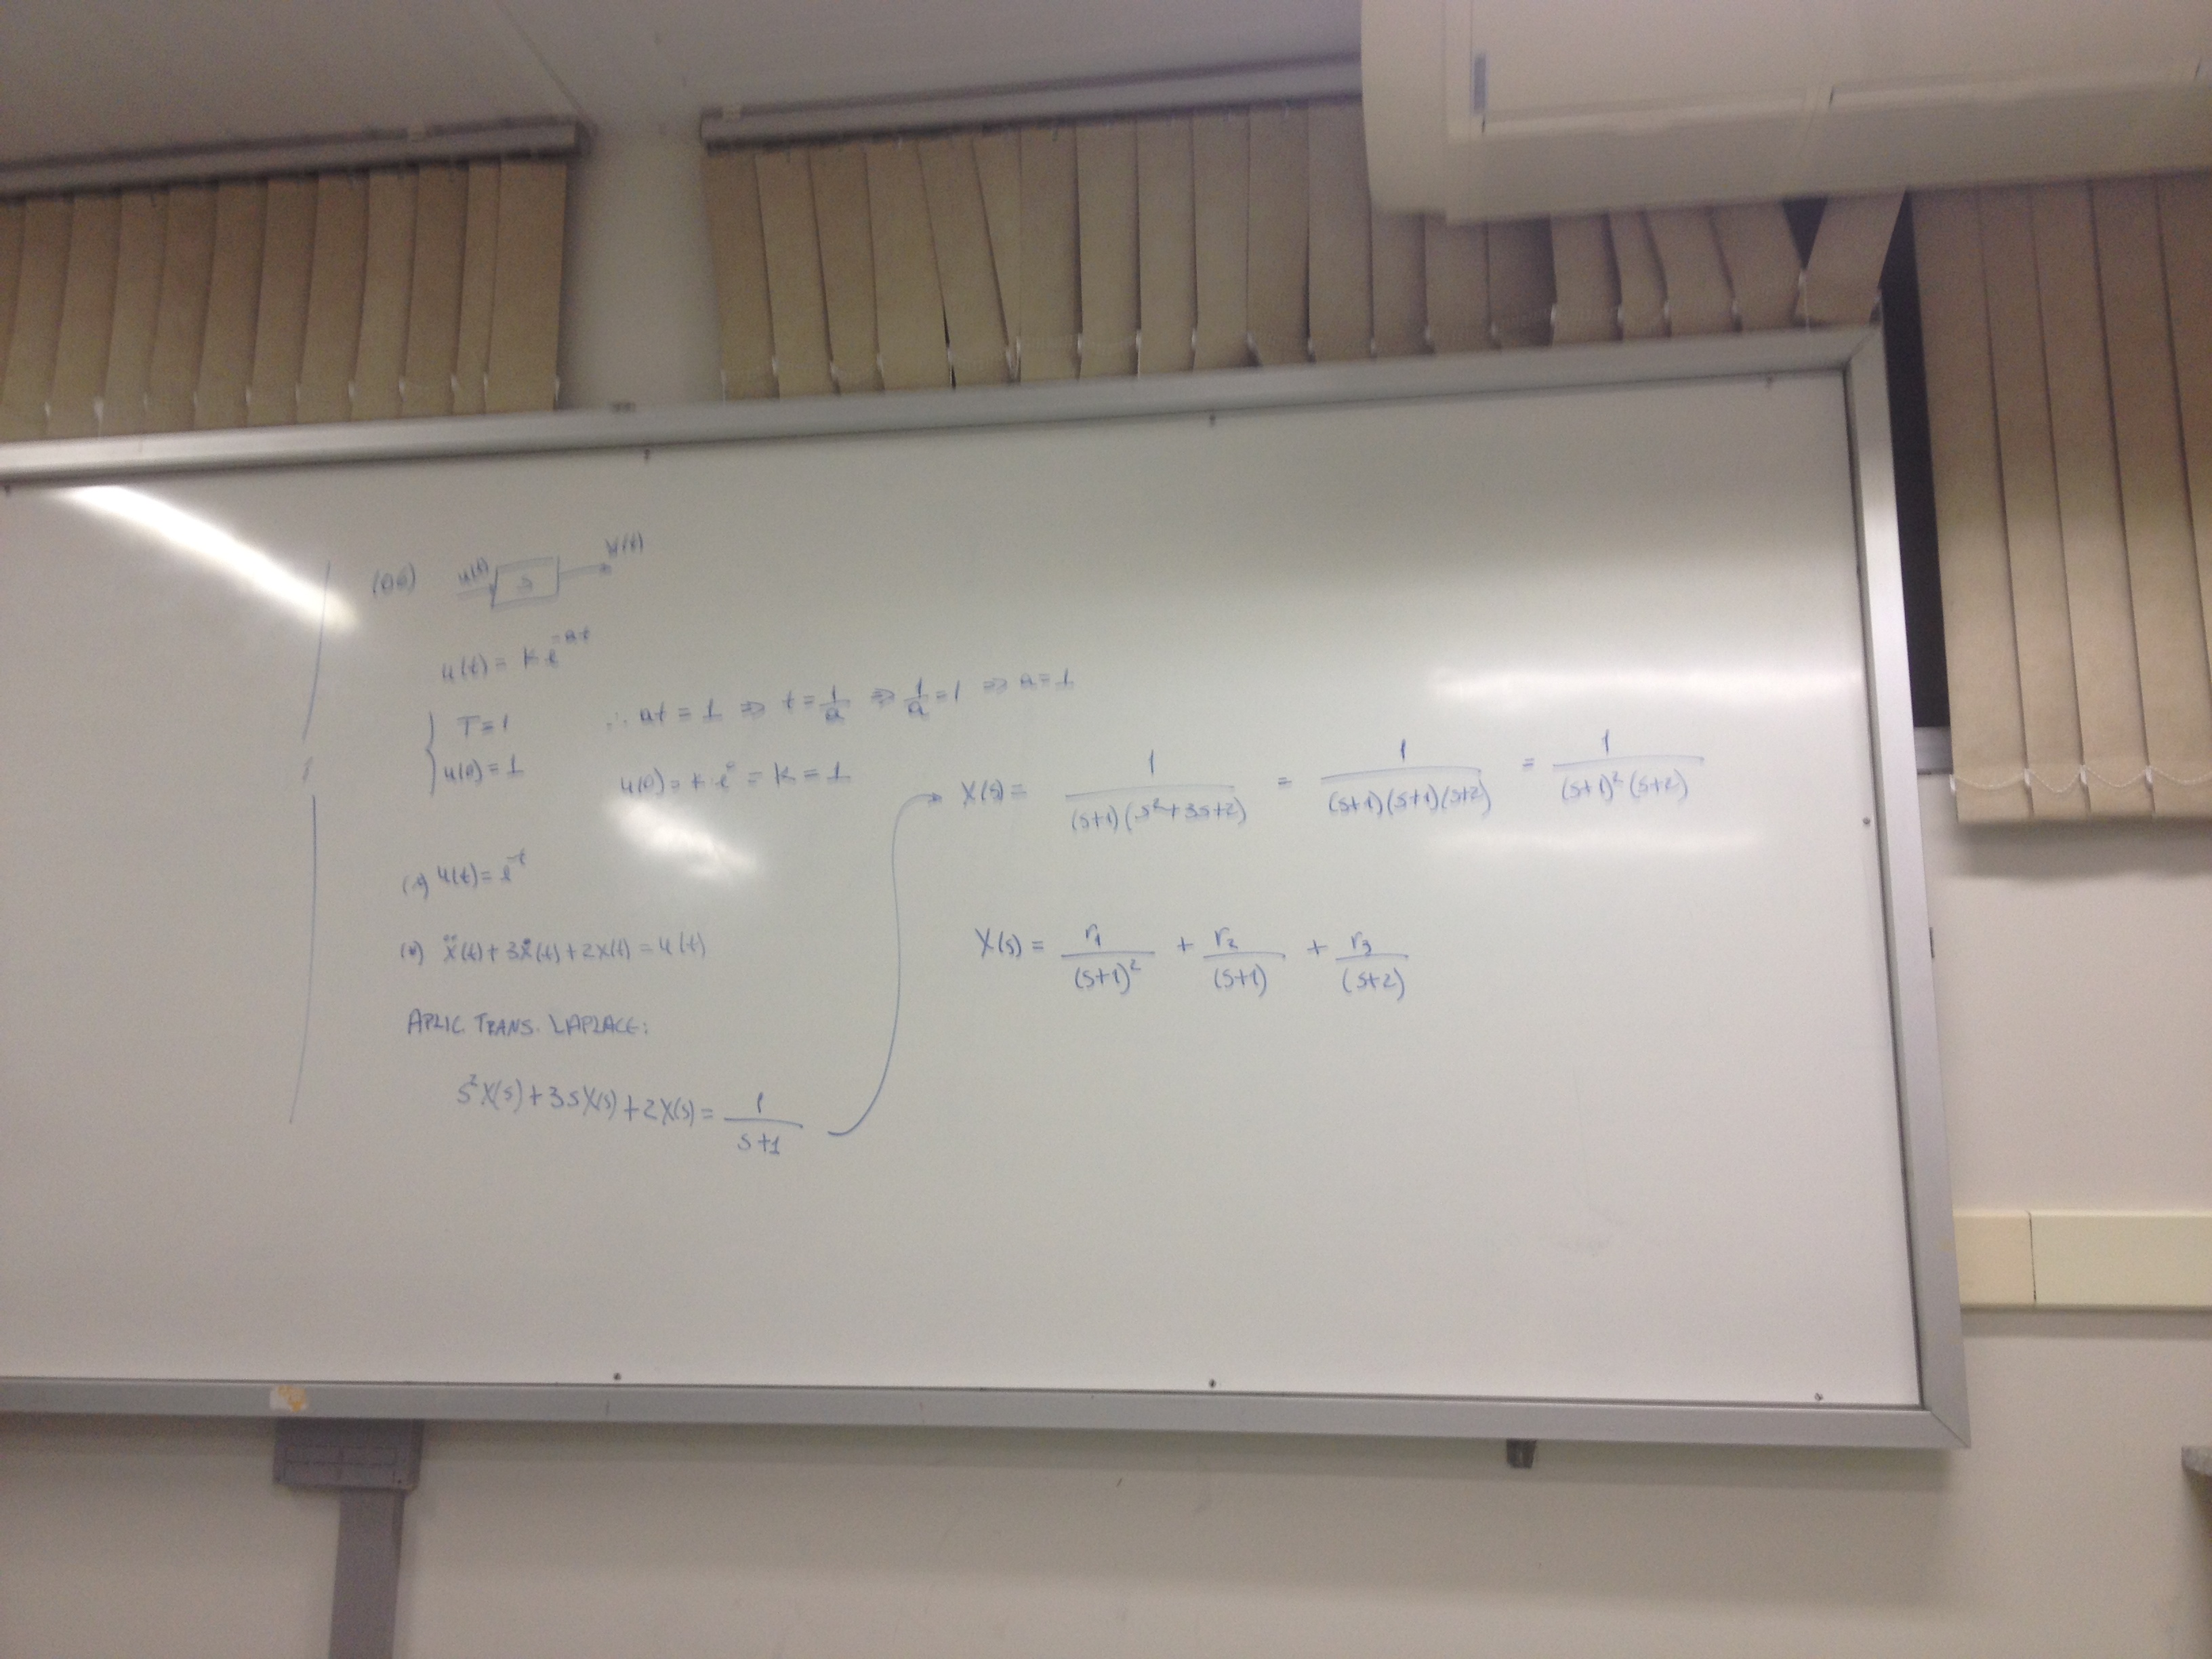 u(t) S
u(t) = k e^{-at}
T = 1 ∴ at = 1 ⇒ t = \frac{1}{a} ⇒ \frac{1}{a} = 1 ⇒ a = 1
u(0) = 1 u(0) = k·e^0 = k = 1
u(t) = e^{-t}
ẍ(t) + 3ẋ(t) + 2x(t) = u(t)
APLIC. TRANS. LAPLACE:
s^2X(s) + 3sX(s) + 2X(s) = \frac{1}{s+1}
X(s) = \frac{1}{(s+1)(s^2+3s+2)} = \frac{1}{(s+1)(s+1)(s+2)} = \frac{1}{(s+1)^2(s+2)}
X(s) = \frac{r_1}{(s+1)^2} + \frac{r_2}{(s+1)} + \frac{r_3}{(s+2)}